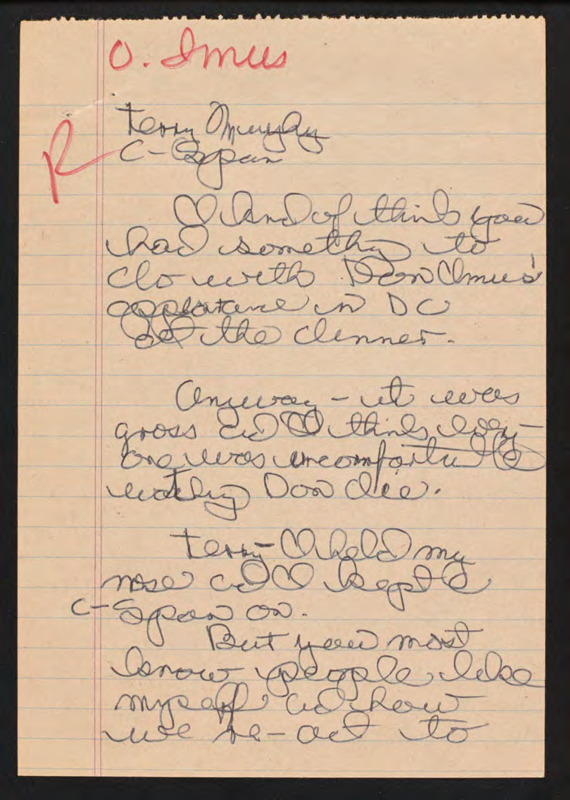 D. Imus
R
Terry Murphy
C-Span
I kind of think you
had somethig to
do with Don Imus'
appearance in DC
at the dinner.
Anyway - it was
gross ad I think every-
one was uncomfortable
watchig Don die.
Terry - I held my
nose ad I kept
C-Span on.
But you most
know people like
myself ad how
we re-act to